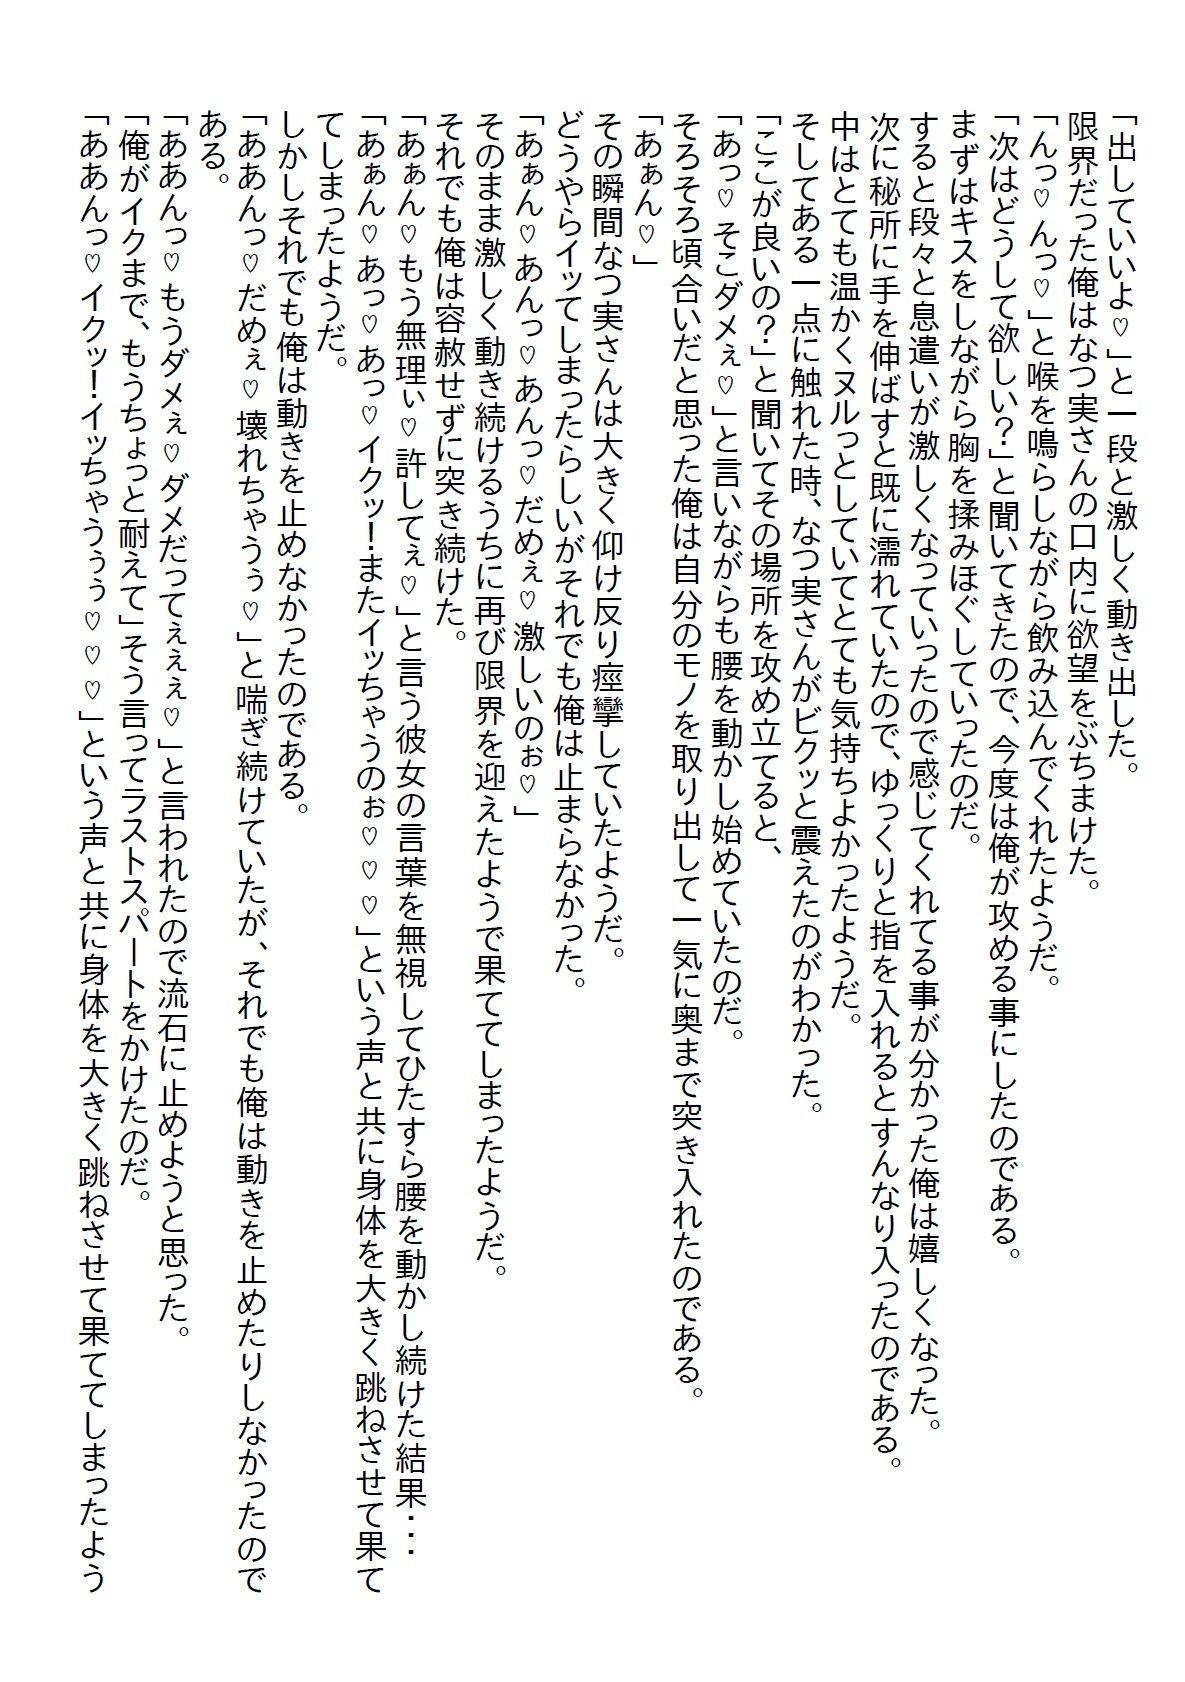 「出していいよ♡」と一段と激しく動き出した。
限界だった俺はなつ実さんの口内に欲望をぶちまけた。
「んっ♡んっ♡」と喉を鳴らしながら飲み込んでくれたようだ。
「次はどうして欲しい？」と聞いてきたので、今度は俺が攻める事にしたのである。
まずはキスをしながら胸を揉みほぐしていったのだ。
すると段々と息遣いが激しくなっていったので感じてくれてる事が分かった俺は嬉しくなった。
次に秘所に手を伸ばすと既に濡れていたので、ゆっくりと指を入れるとすんなり入ったのである。
中はとても温かくヌルっとしていてとても気持ちよかったようだ。
そしてある一点に触れた時、なつ実さんがビクッと震えたのがわかった。
「ここが良いの？」と聞いてその場所を攻め立てると、
「あっ♡そこダメぇ♡」と言いながらも腰を動かし始めていたのだ。
そろそろ頃合いだと思った俺は自分のモノを取り出して一気に奥まで突き入れたのである。
「あぁん♡」
その瞬間なつ実さんは大きく仰け反り痙攣していたようだ。
どうやらイッてしまったらしいがそれでも俺は止まらなかった。
「あぁん♡あんっ♡あんっ♡だめぇ♡激しいのぉ♡」
そのまま激しく動き続けるうちに再び限界を迎えたようで果ててしまったようだ。
それでも俺は容赦せずに突き続けた。
「あぁん♡もう無理ぃ♡許してぇ♡」と言う彼女の言葉を無視してひたすら腰を動かし続けた結果・・・
「あぁん♡あっ♡あっ♡イクッ！またイッちゃうのぉ♡♡♡」という声と共に身体を大きく跳ねさせて果て
てしまったようだ。
しかしそれでも俺は動きを止めなかったのである。
「ああんっ♡だめぇ♡壊れちゃうぅ♡」と喘ぎ続けていたが、それでも俺は動きを止めたりしなかったので
ある。
「ああんっ♡もうダメぇ♡ダメだってぇぇぇ♡」と言われたので流石に止めようと思った。
「俺がイクまで、もうちょっと耐えて」そう言ってラストスパートをかけたのだ。
「ああんっ♡イクッ！イッちゃうぅぅ♡♡♡」という声と共に身体を大きく跳ねさせて果ててしまったよう